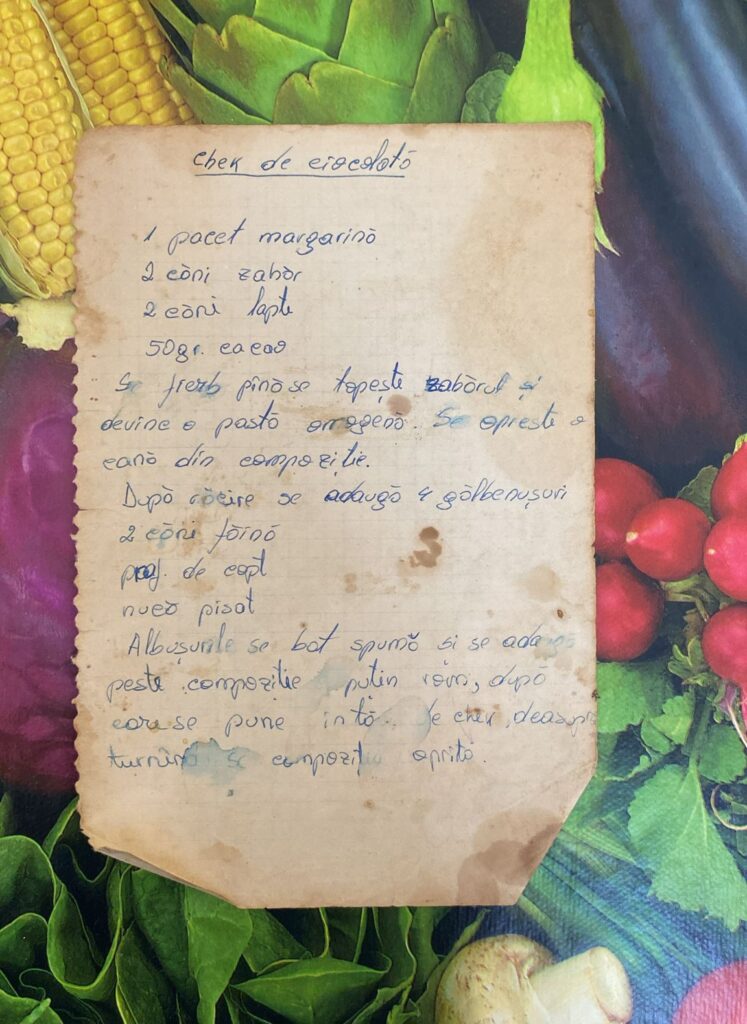 Chek de ciocolată
1 pacet margarină
2 căni zahăr
2 căni lapte
50gr. cacao
Se fierb pînă se topește zahărul și
devine o pastă omogenă. Se oprește o
cană din compoziție.
După răcire se adaugă 4 gălbenușuri
2 căni făină
praf. de copt
nucă pisat
Albușurile se bat spumă si se adaugă
peste compoziție puțin rom, după
care se pune în tă. de chek, deasupra
turnînd compoziț oprită.